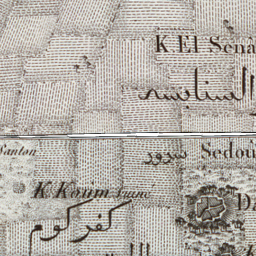 K El Sena
السنابسه
Santon
سرور
Sedou
K Koûm
كفر كوم
Da